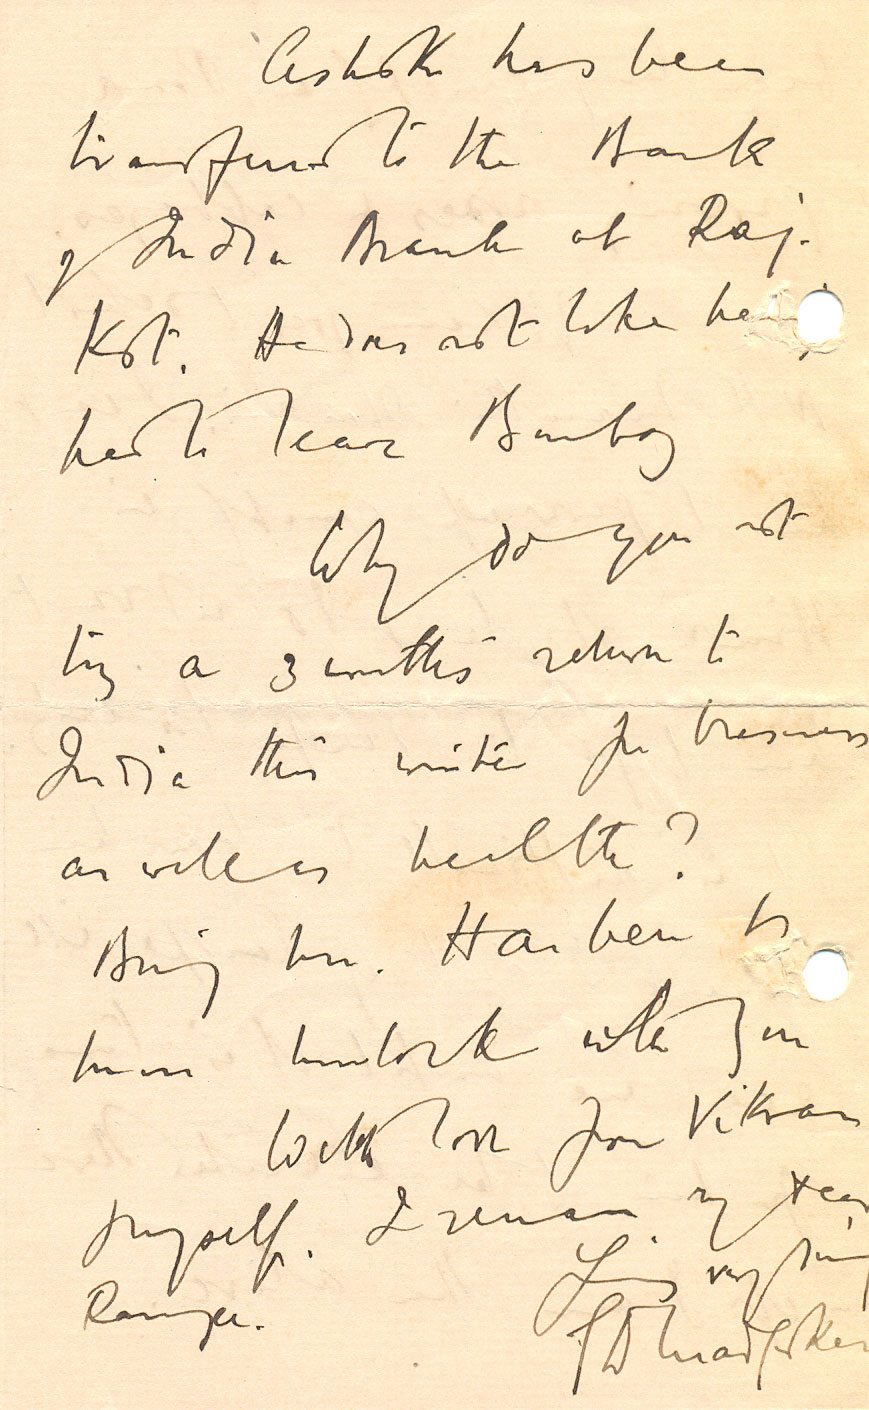 Ashok has been
transferred to the Bank
of India Branch at Raj-
Kot. He does not like having
had to leave Bombay
Why do you not
try a 3 months return to
India this winter for business
as well as health?
Bring Mrs. Harben &
with you
With love from Vikram
& myself, I remain my dear
Yours very sincerely